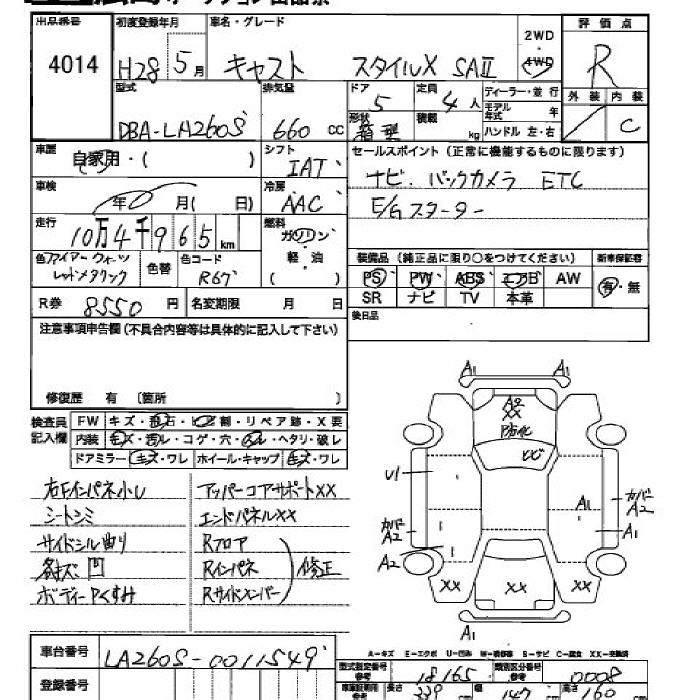 出品番号 初度登録年月 車名・グレード 2WD 評価点
4014 H28 5月 キャスト スタイルX SAⅡ 4WD R
型式 排気量 ドア 定員 ディーラー・並行 外装 内装
DBA-LA260S 660 CC 5 4人 モデル年式 年 C
形状 積載 kg ハンドル 左・右
車歴 自家用・( ) シフト IAT セールスポイント(正常に機能するものに限ります)
車検 年 月( 日) 冷房 AAC ナビ. バックカメラ ETC
E/Gスターター
走行 10万4千965km 燃料 ガソリン・軽・油 ( )
装備品(純正品に限り○をつけてください) 新車保証書
色 ファイアークォーツレッドメタリック 色替 色コード R67
PS PW ABS エアB AW 有・無
SR ナビ TV 本革
R券 8550円 名変期限 月 日
後日品
注意事項申告欄(不具合内容等は具体的に記入して下さい)
修復歴 有 〔箇所 〕
検査員記入欄
FW キズ・飛石・ヒビ割・リペア跡・X要
内装 キズ・汚ル・コゲ・穴・・ヘタリ・破レ
ドアミラー キズ・ワレ ホイール・キャップ キズ・ワレ
右Fインパネ小U アッパーコアサポートXX
シートシミ エンドパネルXX
サイドシル曲り Rフロア
凹 Rインパネ 修正
ボディーPくすみ Rサイドメンバー
A1 A1
A2
XX
U1
A1
カバーA2
カバーA2
A1
A2
XX XX XX
A1
A-キズ E-エクボ U-凹み W-補修跡 S-サビ C-腐食 XX-交換済
車台番号 LA260S-0011549
登録番号
型式指定番号 参考 18165 類別区分番号 参考 0008
車庫証明用 参考 長さ 339 cm 幅 147 cm 高さ 160 cm